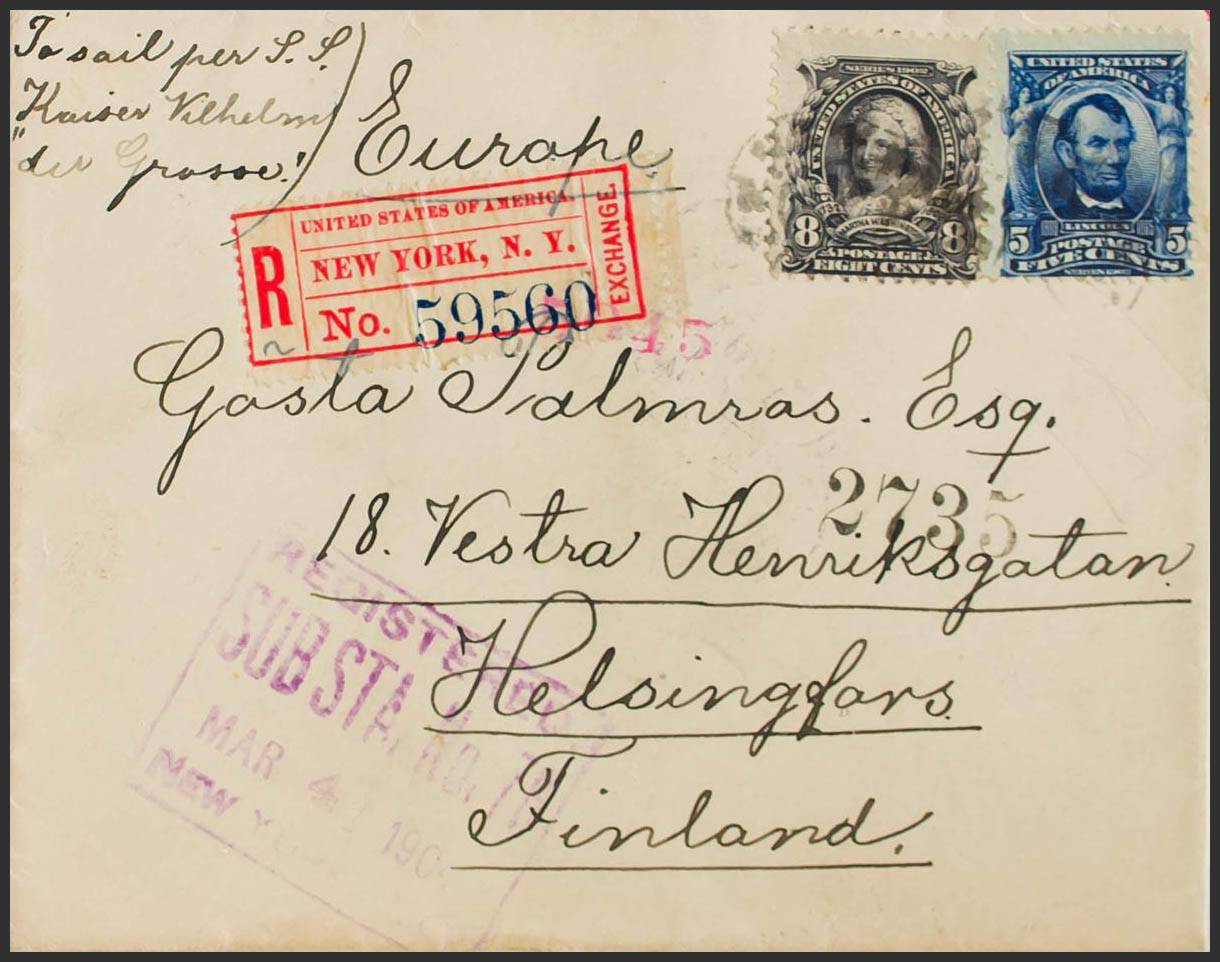 To sail per S.S.
Kaiser Vilhelm
"der Grosse".
Europe
SERIES 1902
UNITED STATES OF AMERICA
8 MARTHA WASHINGTON 8
POSTAGE
EIGHT CENTS
UNITED STATES
OF AMERICA
5 LINCOLN 5
POSTAGE
FIVE CENTS
SERIES 1902
R
UNITED STATES OF AMERICA.
NEW YORK, N. Y.
No. 59560
EXCHANGE.
45
Gosta Palmras. Esq.
2735
18. Vestra Henriksgatan.
Helsingfors.
Finland.
REGISTERED
SUB STA. NO.
MAR 4 190
NEW YORK